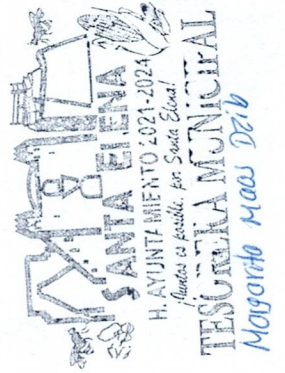 SANTA ELENA
H. AYUNTAMIENTO 2021-2024
¡Juntos es posible, por Santa Elena!
TESORERIA MUNICIPAL
Margarita Maas Dzib